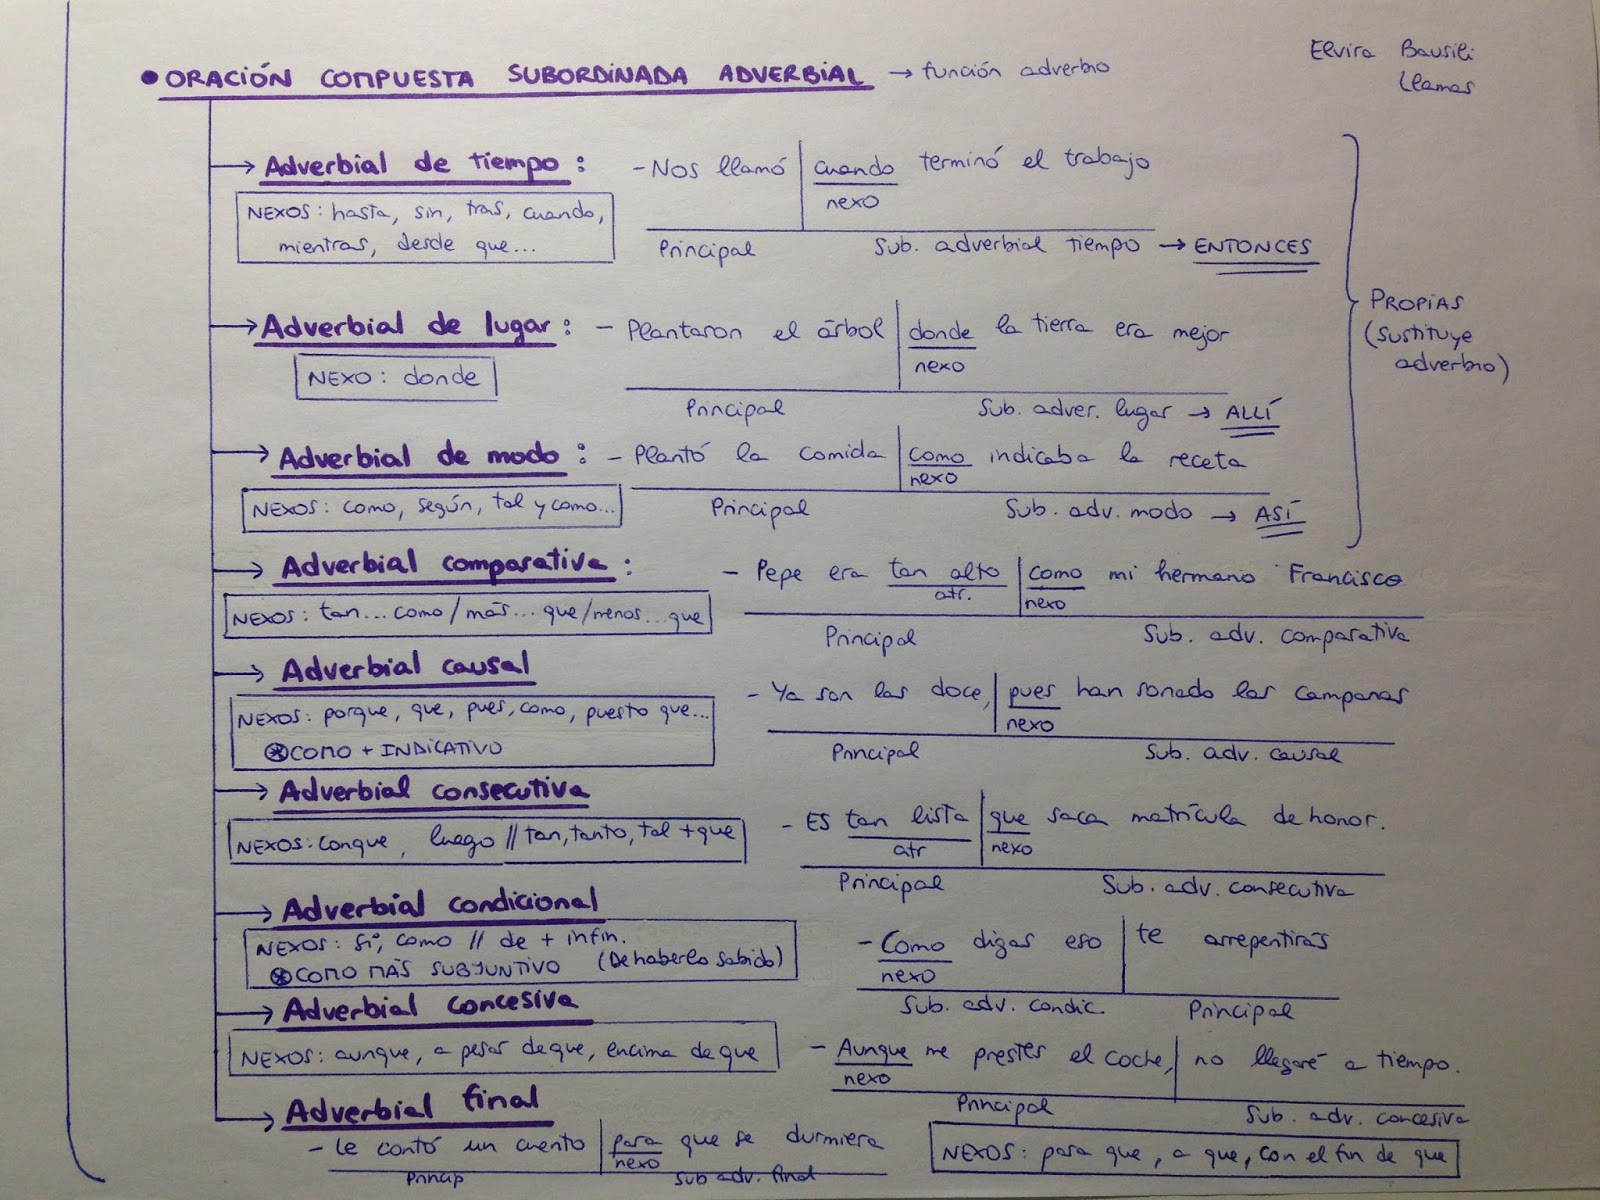 • ORACIÓN COMPUESTA SUBORDINADA ADVERBIAL → función adverbio
Elvira Bausili
Llamas
→ Adverbial de tiempo :
- Nos llamó | cuando terminó el trabajo
nexo
NEXOS: hasta, sin, tras, cuando,
mientras, desde que...
Principal Sub. adverbial tiempo → ENTONCES
→ Adverbial de lugar : - Plantaron el árbol | donde la tierra era mejor
nexo
NEXO: donde
Principal Sub. adver. lugar → ALLÍ
PROPIAS
(sustituye
adverbio)
→ Adverbial de modo : - Plantó la comida | como indicaba la receta
nexo
NEXOS: como, según, tal y como...
Principal Sub. adv. modo → ASÍ
→ Adverbial comparativa : - Pepe era tan alto | como mi hermano Francisco
atr. nexo
NEXOS: tan... como/más... que/menos...que
Principal Sub. adv. comparativa
→ Adverbial causal
- Ya son las doce, | pues han sonado las campanas
nexo
NEXOS: porque, que, pues, como, puesto que...
⊛COMO + INDICATIVO
Principal Sub. adv. causal
→ Adverbial consecutiva
- ES tan lista | que saca matrícula de honor.
atr nexo
NEXOS: conque, luego // tan, tanto, tal + que
Principal Sub. adv. consecutiva
→ Adverbial condicional
NEXOS: si, como // de + infin.
⊛COMO MÁS SUBJUNTIVO (De haberlo sabido)
- Como digas eso | te arrepentirás
nexo
Sub. adv. condic. Principal
→ Adverbial concesiva
NEXOS: aunque, a pesar de que, encima de que
- Aunque me prestes el coche, | no llegaré a tiempo.
nexo
Principal Sub. adv. concesiva
→ Adverbial final
- Le contó un cuento | para que se durmiera
nexo
Princip Sub adv. final
NEXOS: para que, a que, con el fin de que